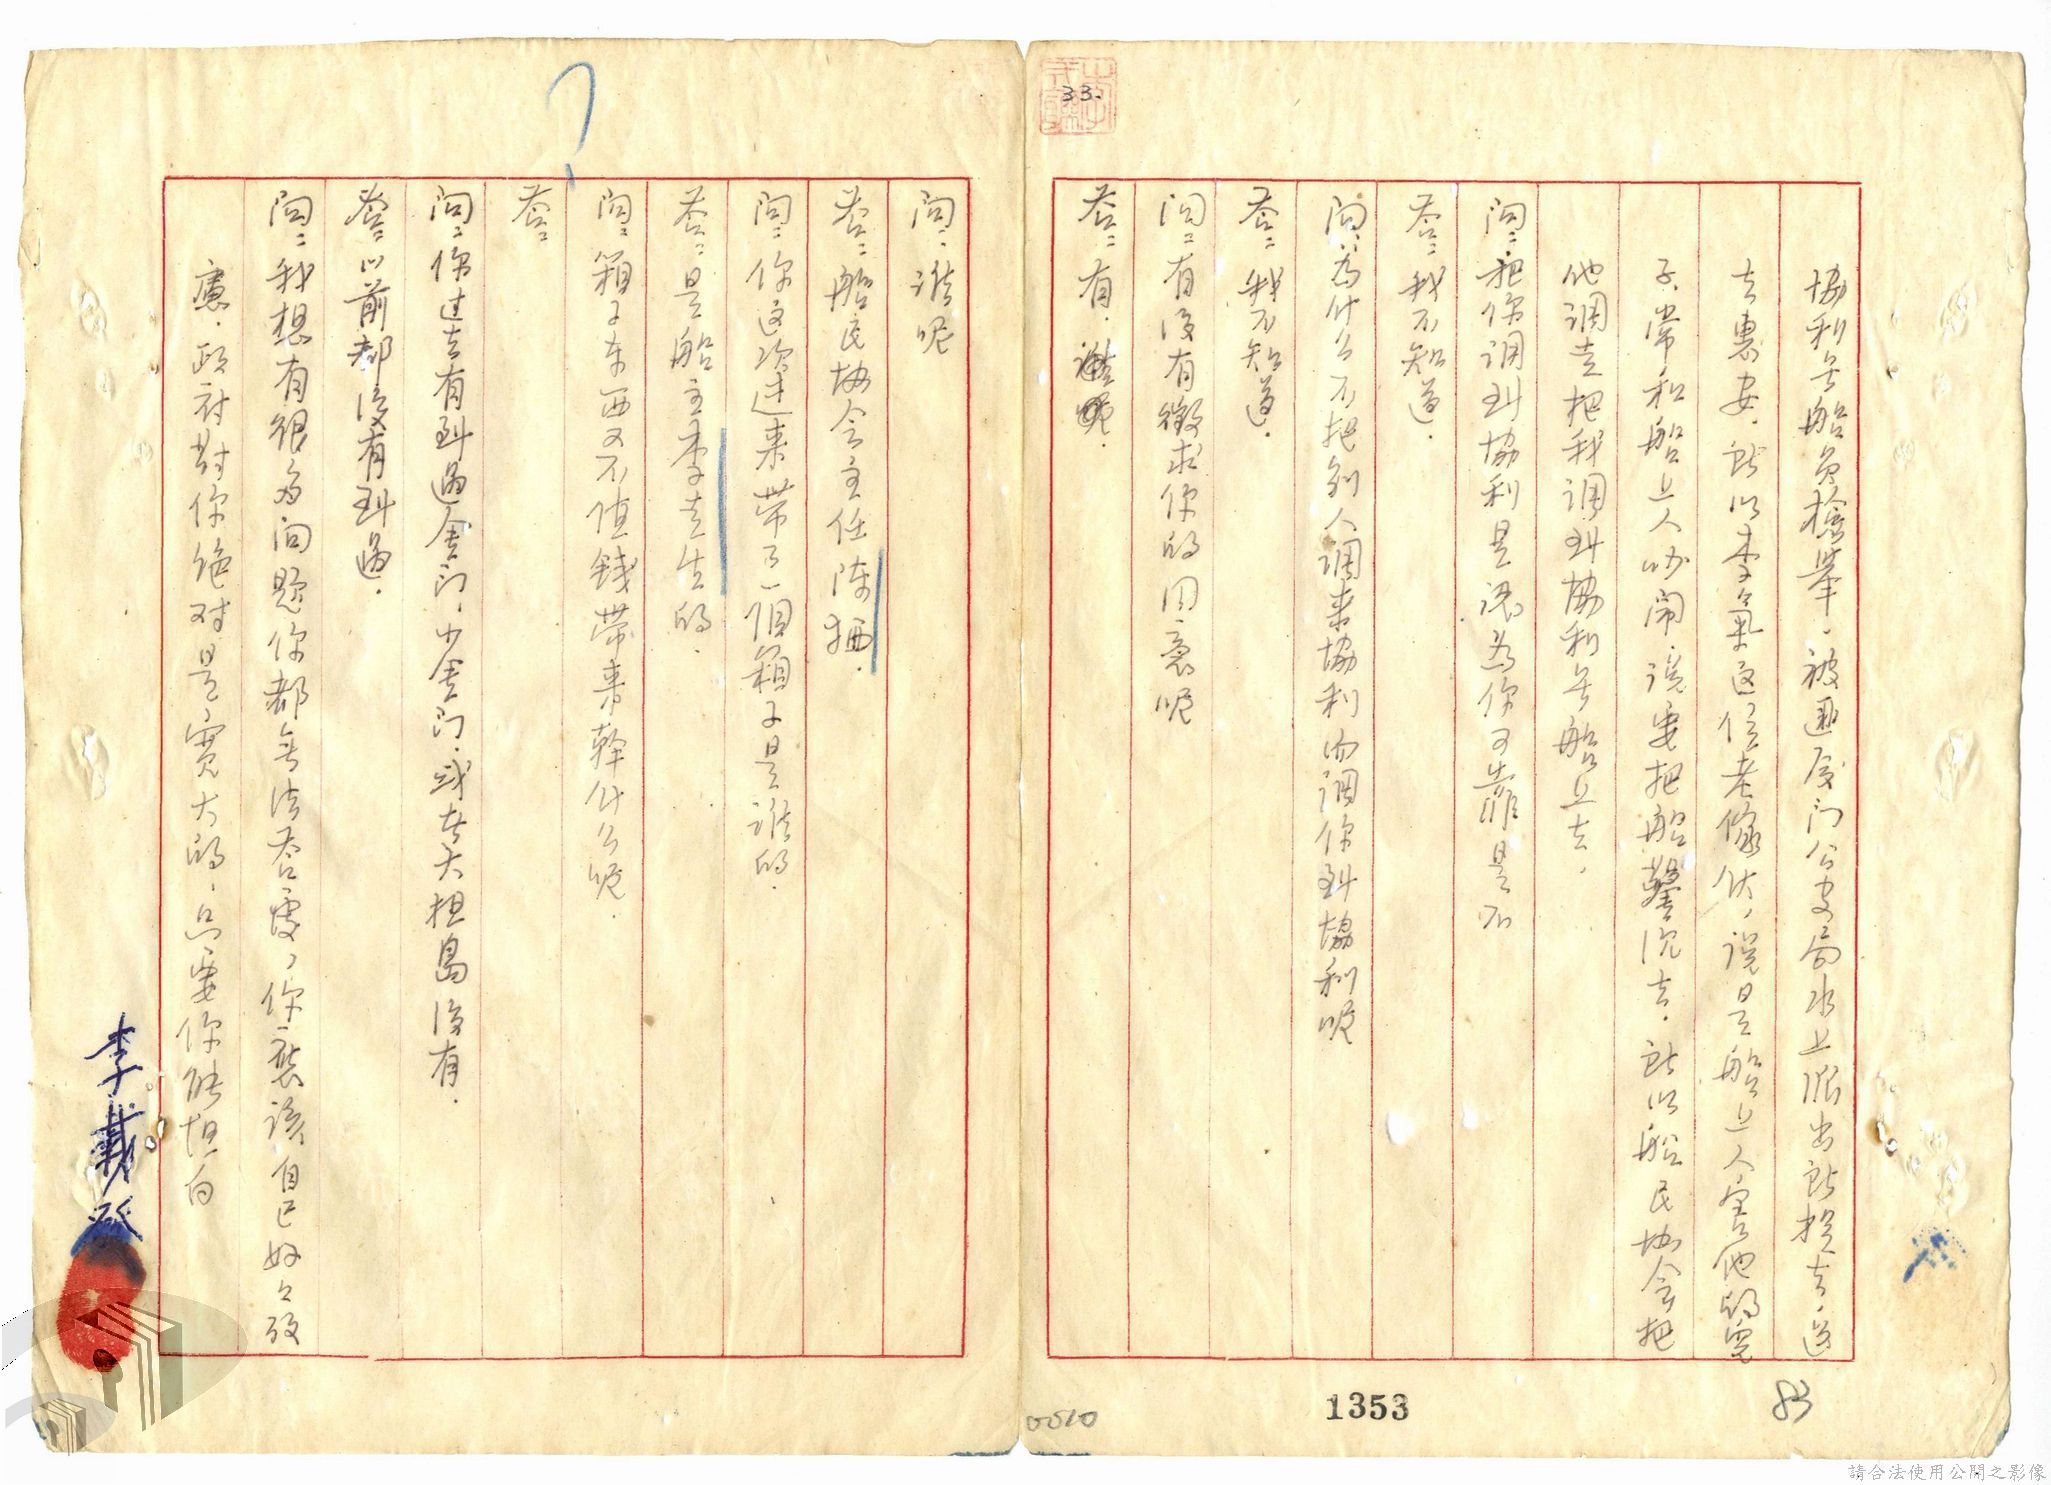 33.
協利号船員檢舉.被逦厦门公安局水上派出所捉去送
去惠安.所以李氣这位老傢伙,說是船上人害他的兒
子.常和船上人吵鬧.說要把船鑿沉去.所以船民协会把
他調走把我調到協利号船上去.
問:把你調到協利是認為你可靠是不
答:我不知道.
問:為什么不把别人調来協利而調你到協利呢
答:我不知道.
問:有没有徵求你的同意呢
答:有.
問:誰呢
答:船民协会主任陈栖.
問:你这次进来带了一個箱子是誰的.
答:是船主李去生的.
問:箱子东西又不值錢带来幹什么呢.
答:
問:你过去有到過金门,小金门.或者大担島没有.
答:以前都没有到過.
問:我想有很多问题你都无法答覆,你應該自己好好攷
慮.政府對你绝对是寬大的,只要你能坦白
李載發
1353
83
0010
請合法使用公開之影像